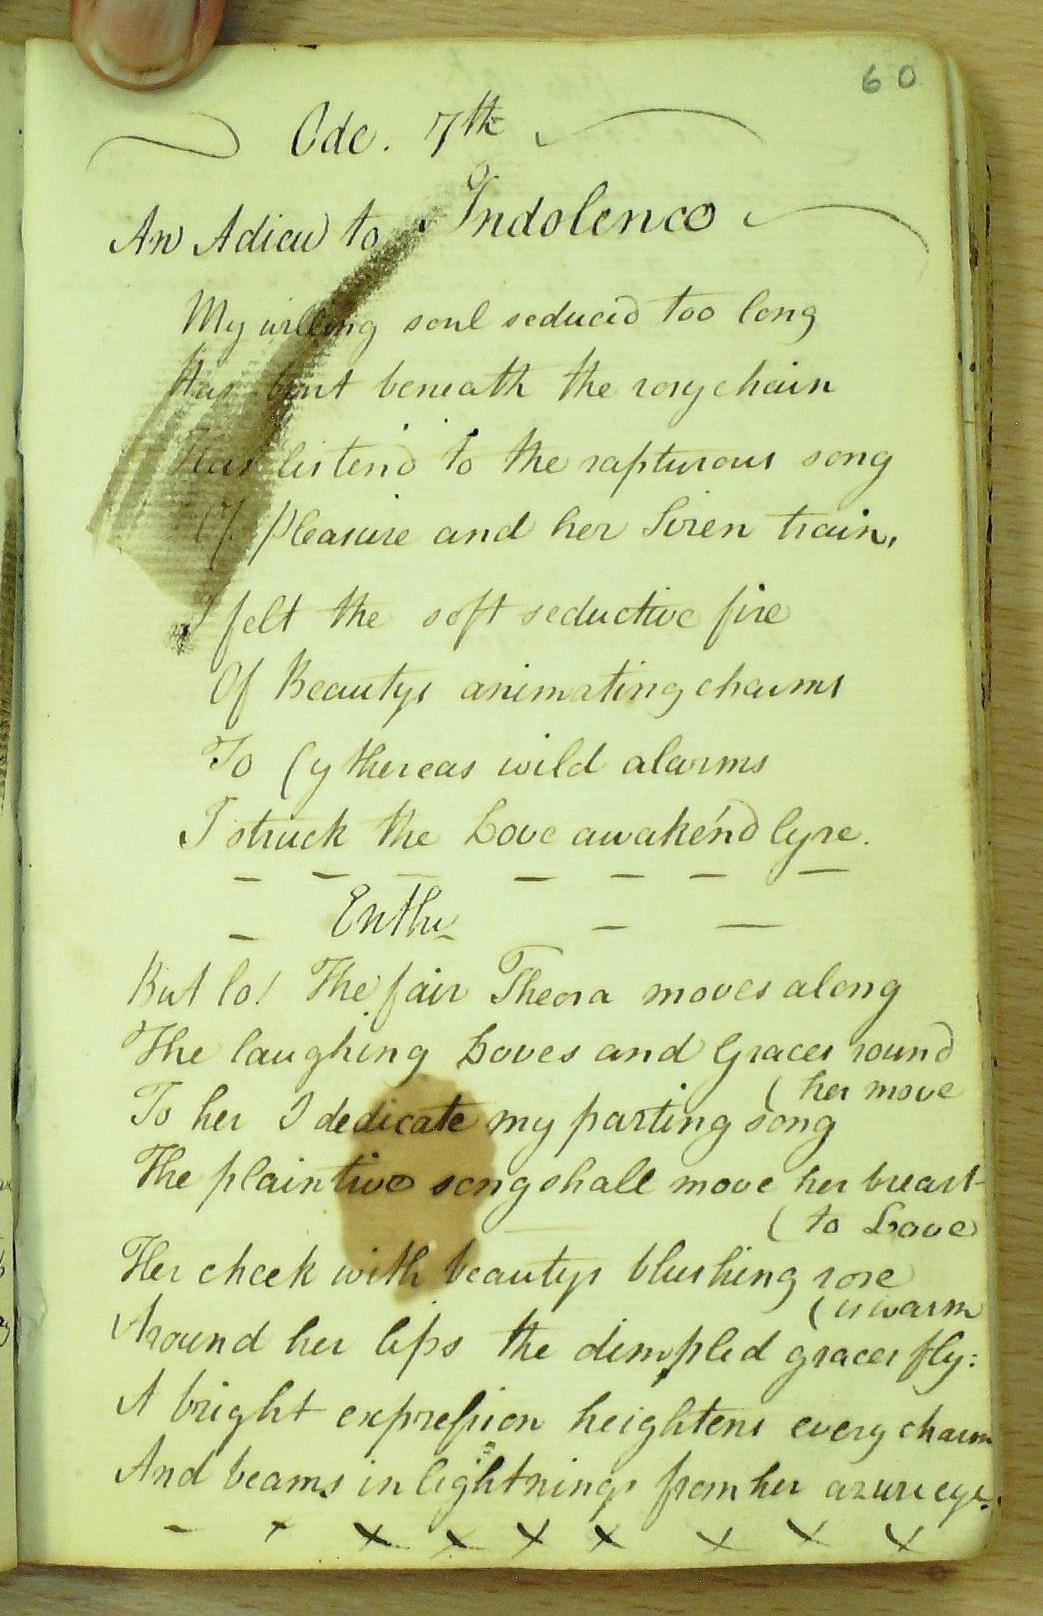 60
Ode. 7th
An Adieu to Indolence
My willing soul seduced too long
Has bent beneath the rosy chain
Has listend to the rapturous song
Of Pleasure and her Siren train,
I felt the soft seductive fire
Of Beautys animating charms
To Cythereas wild alarms
I struck the Love awake'nd lyre.
- - - - - - -
- Enthu - -
But lo! The fair Theora moves along
The laughing Loves and Graces round
( her move
To her I dedicate my parting song
The plaintive song shall move her breast
( to Love
Her cheek with beautys blushing rose
( is warm
Around her lips the dimpled graces fly:
A bright expression heightens every charm
And beams in lightnings from her azure eye.
- x x x x x x x x